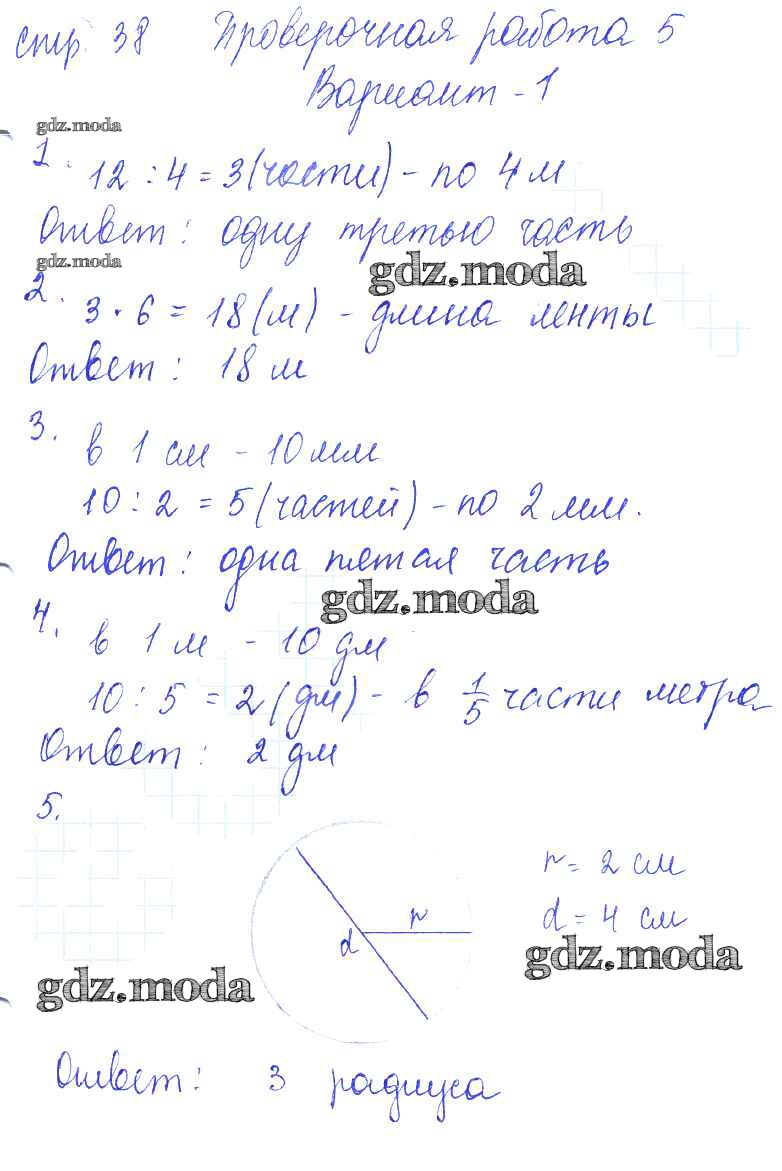 стр. 38 Проверочная работа 5
Вариант - 1
gdz.moda
1. 12 : 4 = 3 (части) - по 4 м
Ответ: одну третью часть
gdz.moda
gdz.moda
2. 3 · 6 = 18 (м) - длина ленты
Ответ: 18 м
3. в 1 см - 10 мм
10 : 2 = 5 (частей) - по 2 мм.
Ответ: одна пятая часть
gdz.moda
4. в 1 м - 10 дм
10 : 5 = 2 (дм) - в 1/5 части метра
Ответ: 2 дм
5.
r = 2 см
r
d = 4 см
d
gdz.moda
gdz.moda
Ответ: 3 радиуса